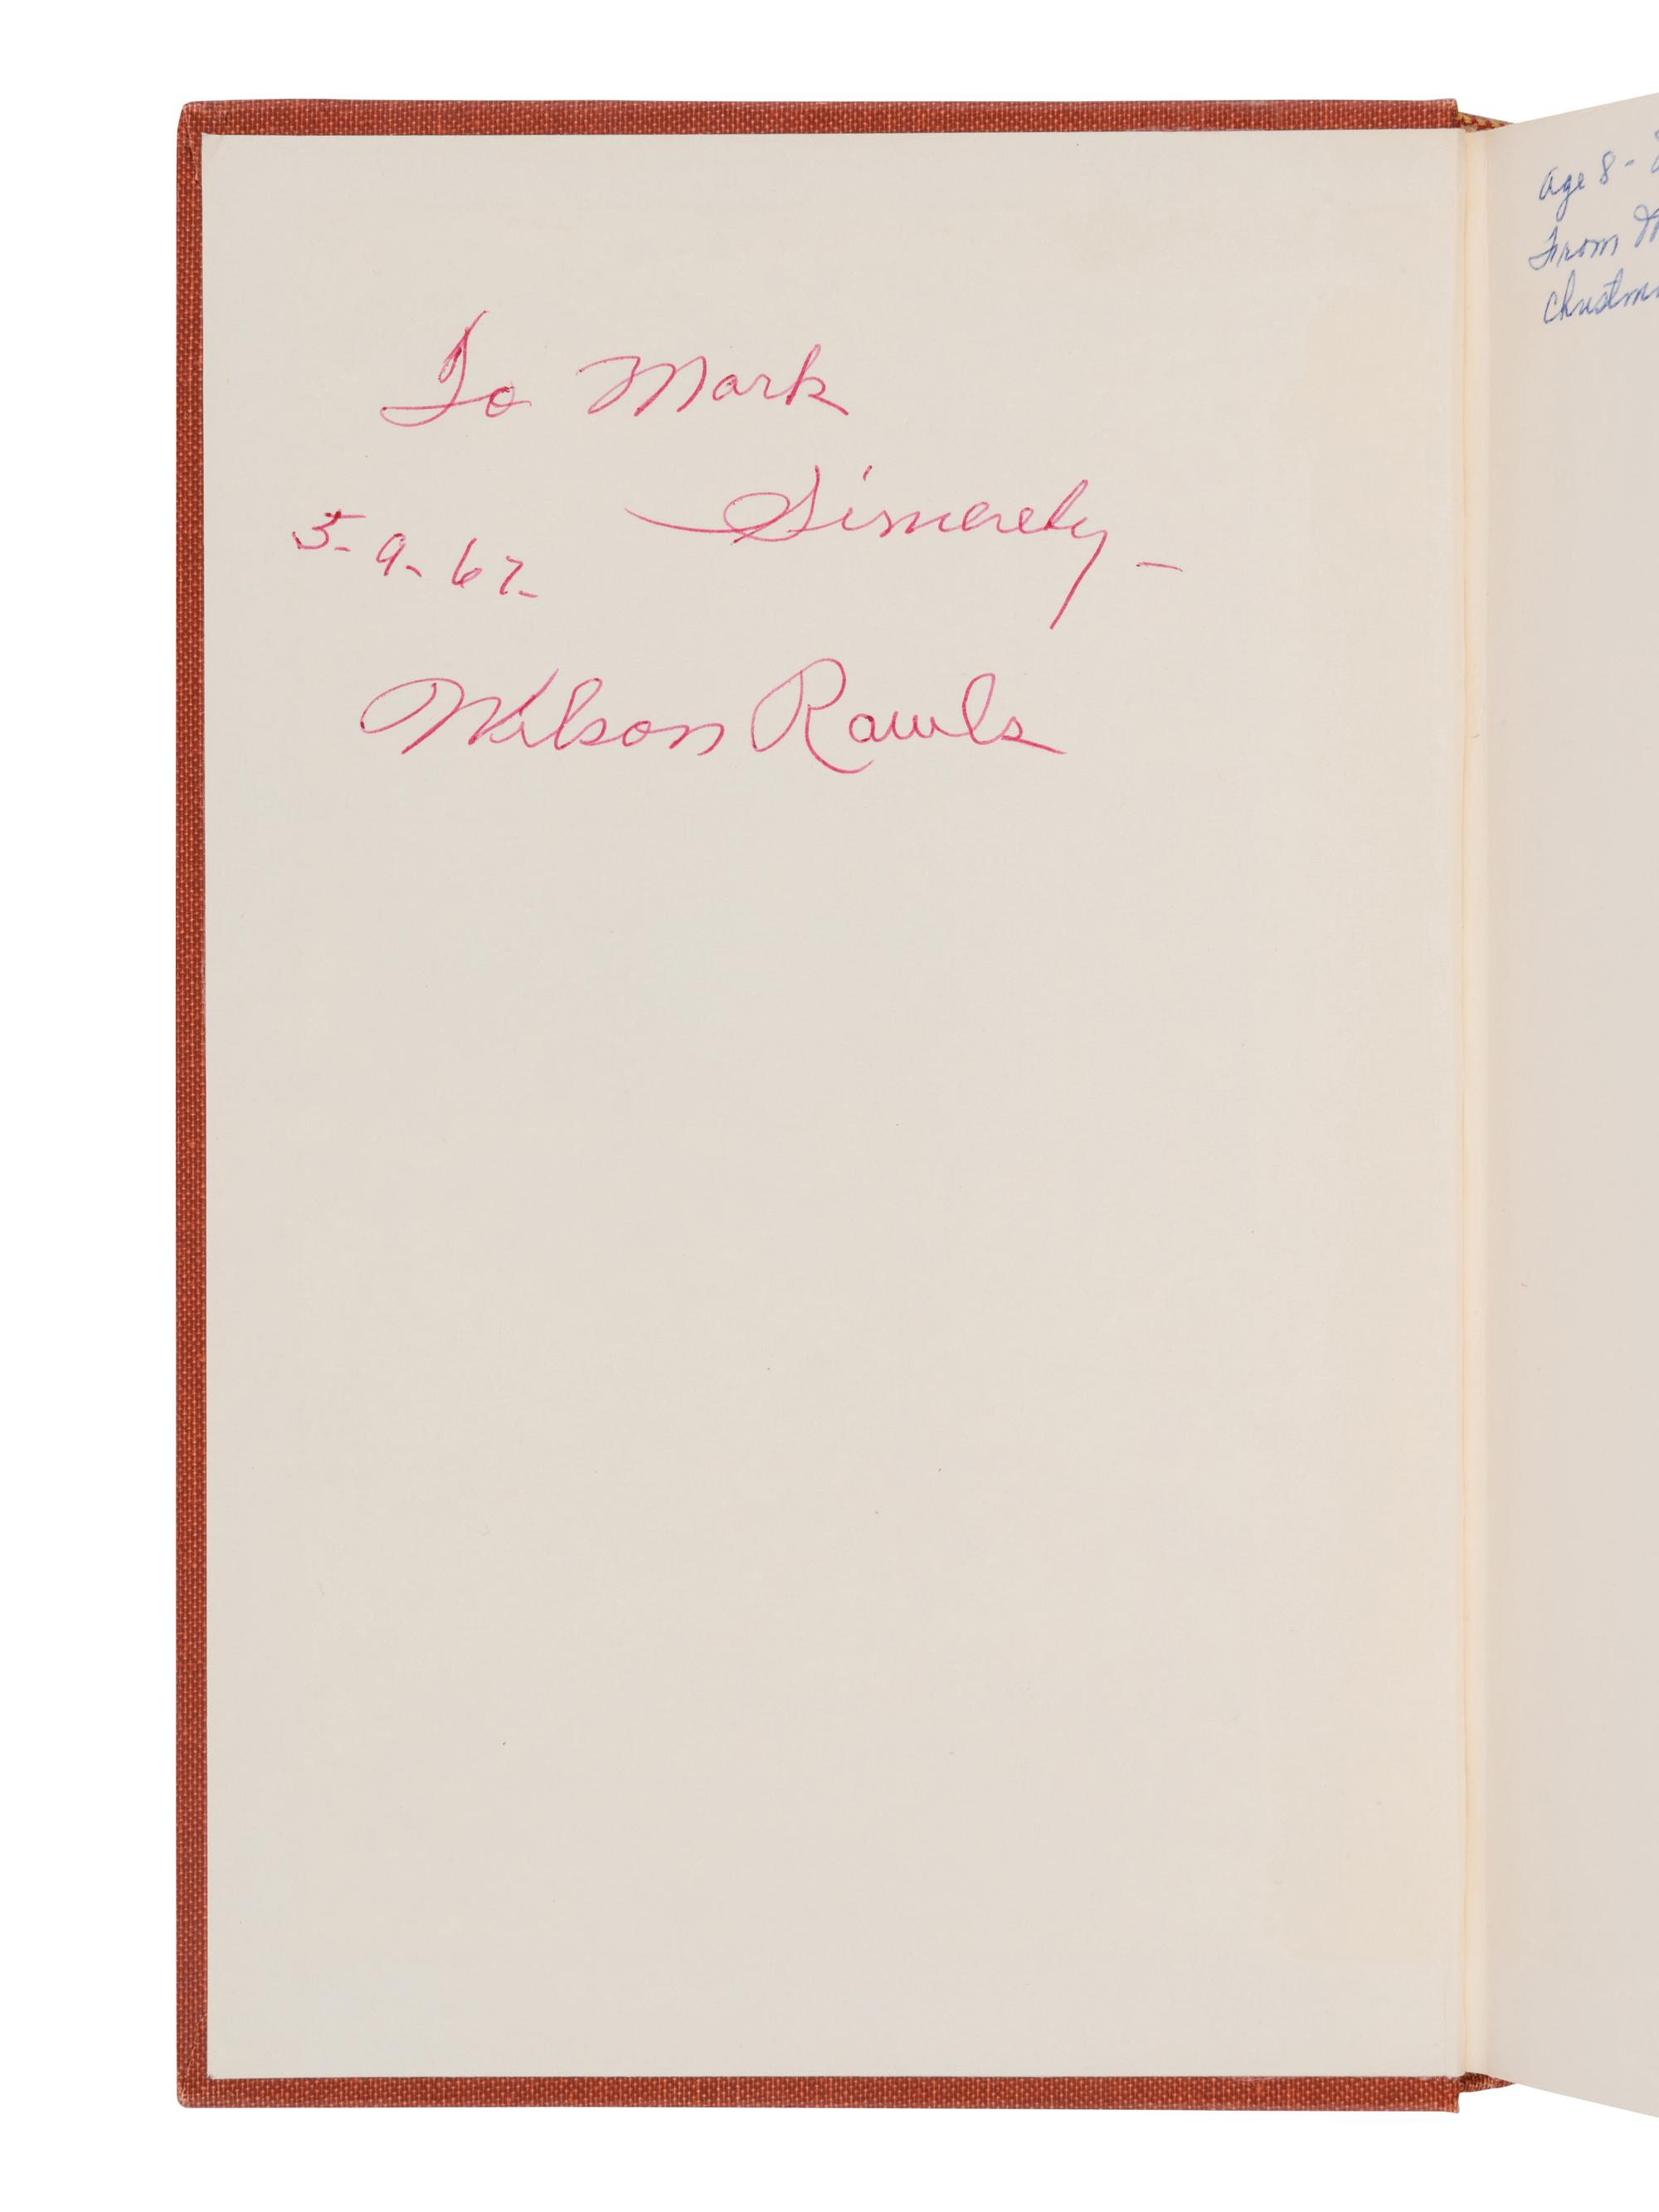 To Mark
Sincerely –
5-9-67-
Wilson Rawls
age 8 -
From